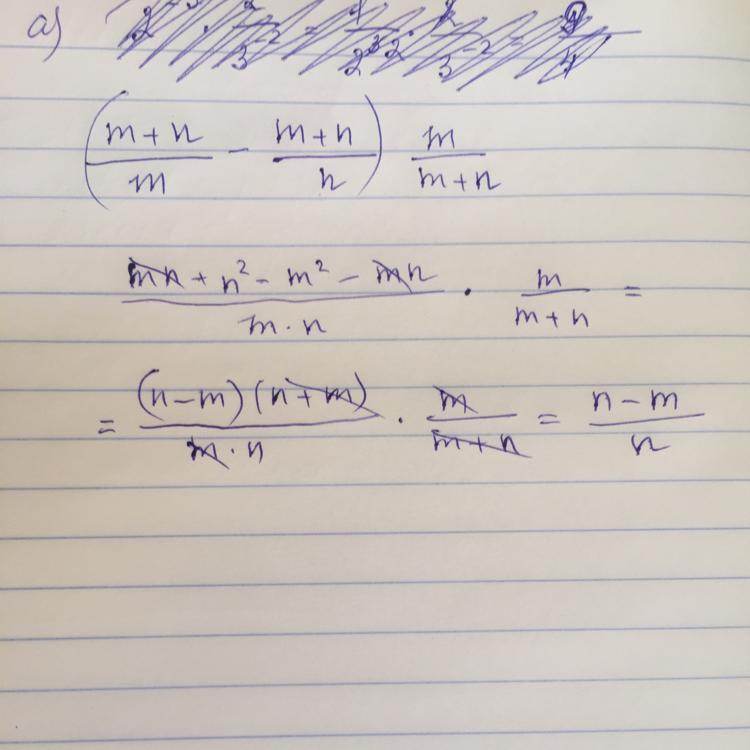 a)
(m+n/m - m+n/n) m/m+n
mn + n² - m² - mn/m·n · m/m+n =
= (n-m)(n+m)/m·n · m/m+n = n-m/n